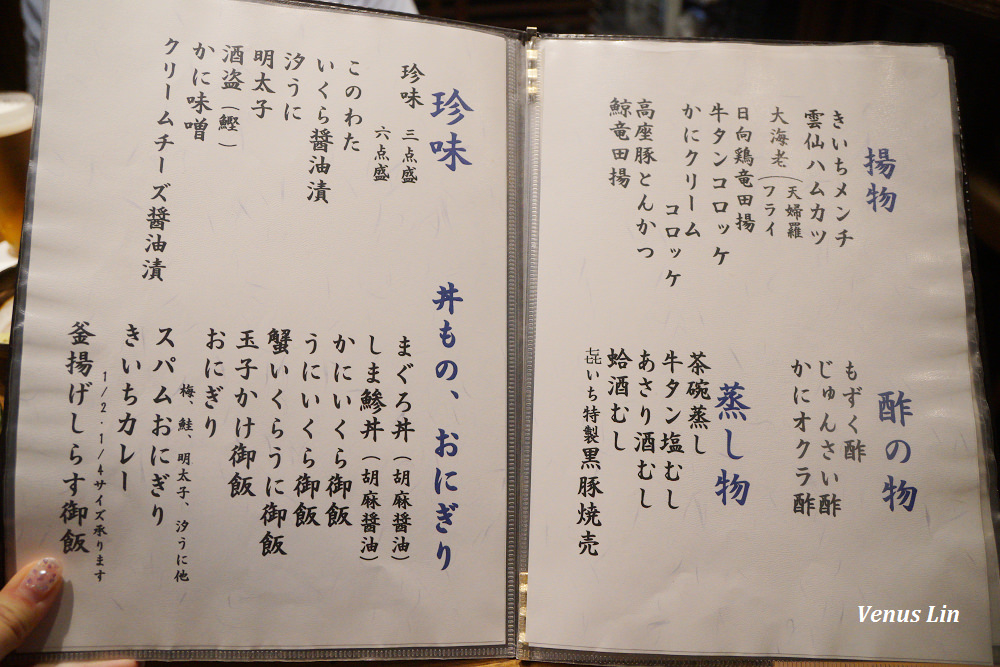 揚物
きいちメンチ
雲仙ハムカツ
大海老（天婦羅
フライ
日向鶏竜田揚
牛タンコロッケ
かにクリーム
コロッケ
高座豚とんかつ
鯨竜田揚
酢の物
もずく酢
じゅんさい酢
かにオクラ酢
蒸し物
茶碗蒸し
牛タン塩むし
あさり酒むし
蛤酒むし
㐂いち特製黒豚焼売
珍味
珍味 三点盛
六点盛
このわた
いくら醤油漬
汐うに
明太子
酒盗（鰹）
かに味噌
クリームチーズ醤油漬
丼もの、おにぎり
まぐろ丼（胡麻醤油）
しま鯵丼（胡麻醤油）
かにいくら御飯
うにいくら御飯
蟹いくらうに御飯
玉子かけ御飯
おにぎり
梅、鮭、明太子、汐うに他
スパムおにぎり
きいちカレー
1/2・1/4サイズ承ります
釜揚げしらす御飯
Venus Lin